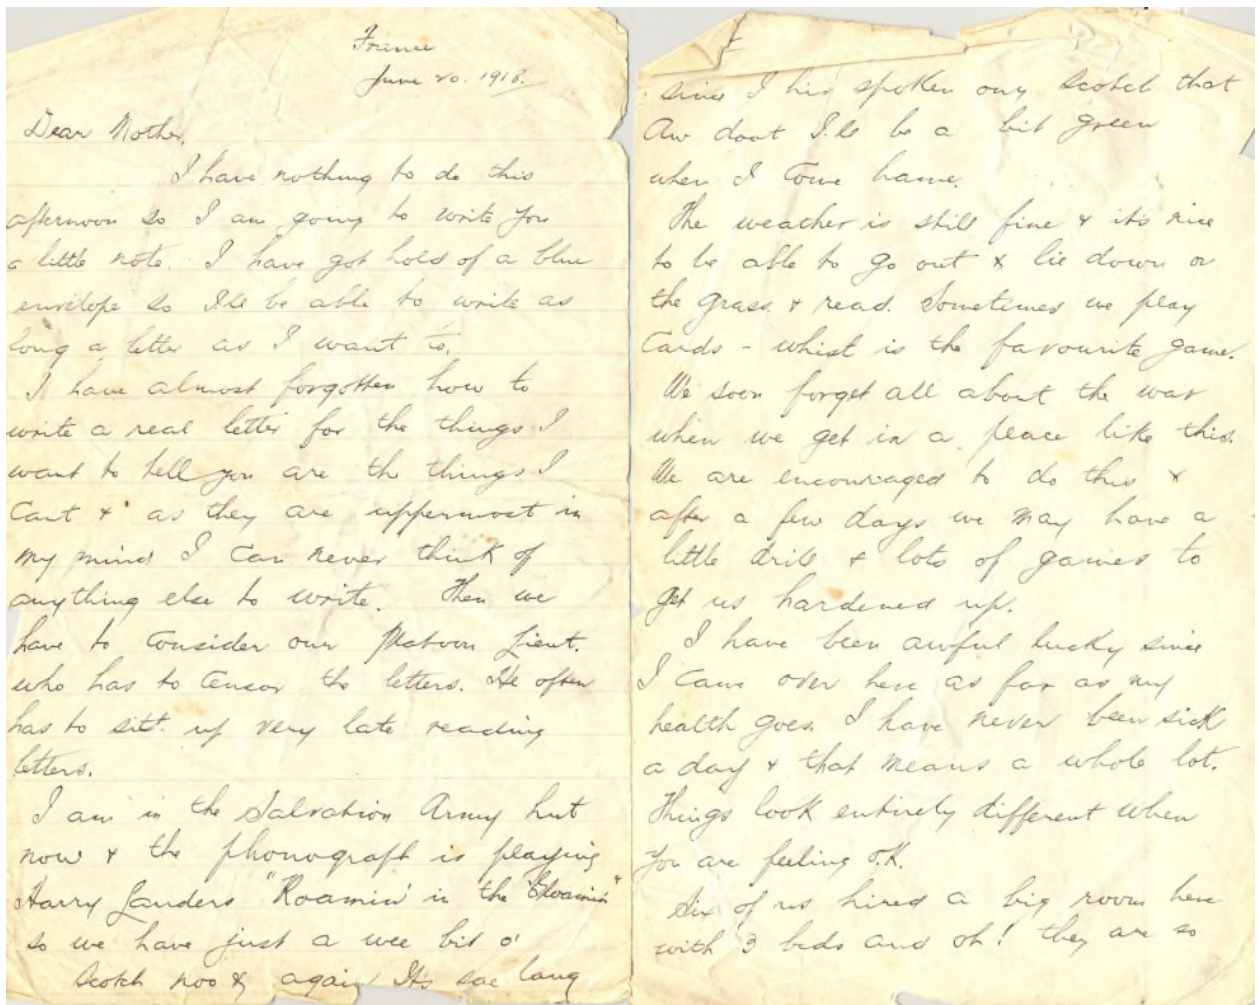 France
June 20. 1918.
Dear Mother,
I have nothing to do this
afternoon so I am going to write you
a little note. I have got hold of a blue
envelope so I'll be able to write as
long a letter as I want to.
I have almost forgotten how to
write a real letter for the things I
want to tell you are the things I
cant & as they are uppermost in
my mind I can never think of
anything else to write. Then we
have to consider our Platoon Lieut.
who has to censor the letters. He often
has to sit up very late reading
letters.
I am in the Salvation Army hut
now & the phonograph is playing
Harry Lauders "Roamin' in the Gloamin"
so we have just a wee bit o'
Scotch noo & again Its sae lang
since I hae spoken ony Scotch that
Aw doot I'll be a bit green
when I come hame.
The weather is still fine & it's nice
to be able to go out & lie down on
the grass & read. Sometimes we play
cards - whist is the favourite game.
We soon forget all about the war
when we get in a place like this.
We are encouraged to do this &
after a few days we may have a
little drill & lots of games to
get us hardened up.
I have been awful lucky since
I came over here as far as my
health goes. I have never been sick
a day & that means a whole lot.
Things look entirely different when
you are feeling O.K.
Six of us hired a big room here
with 3 beds and oh! they are so